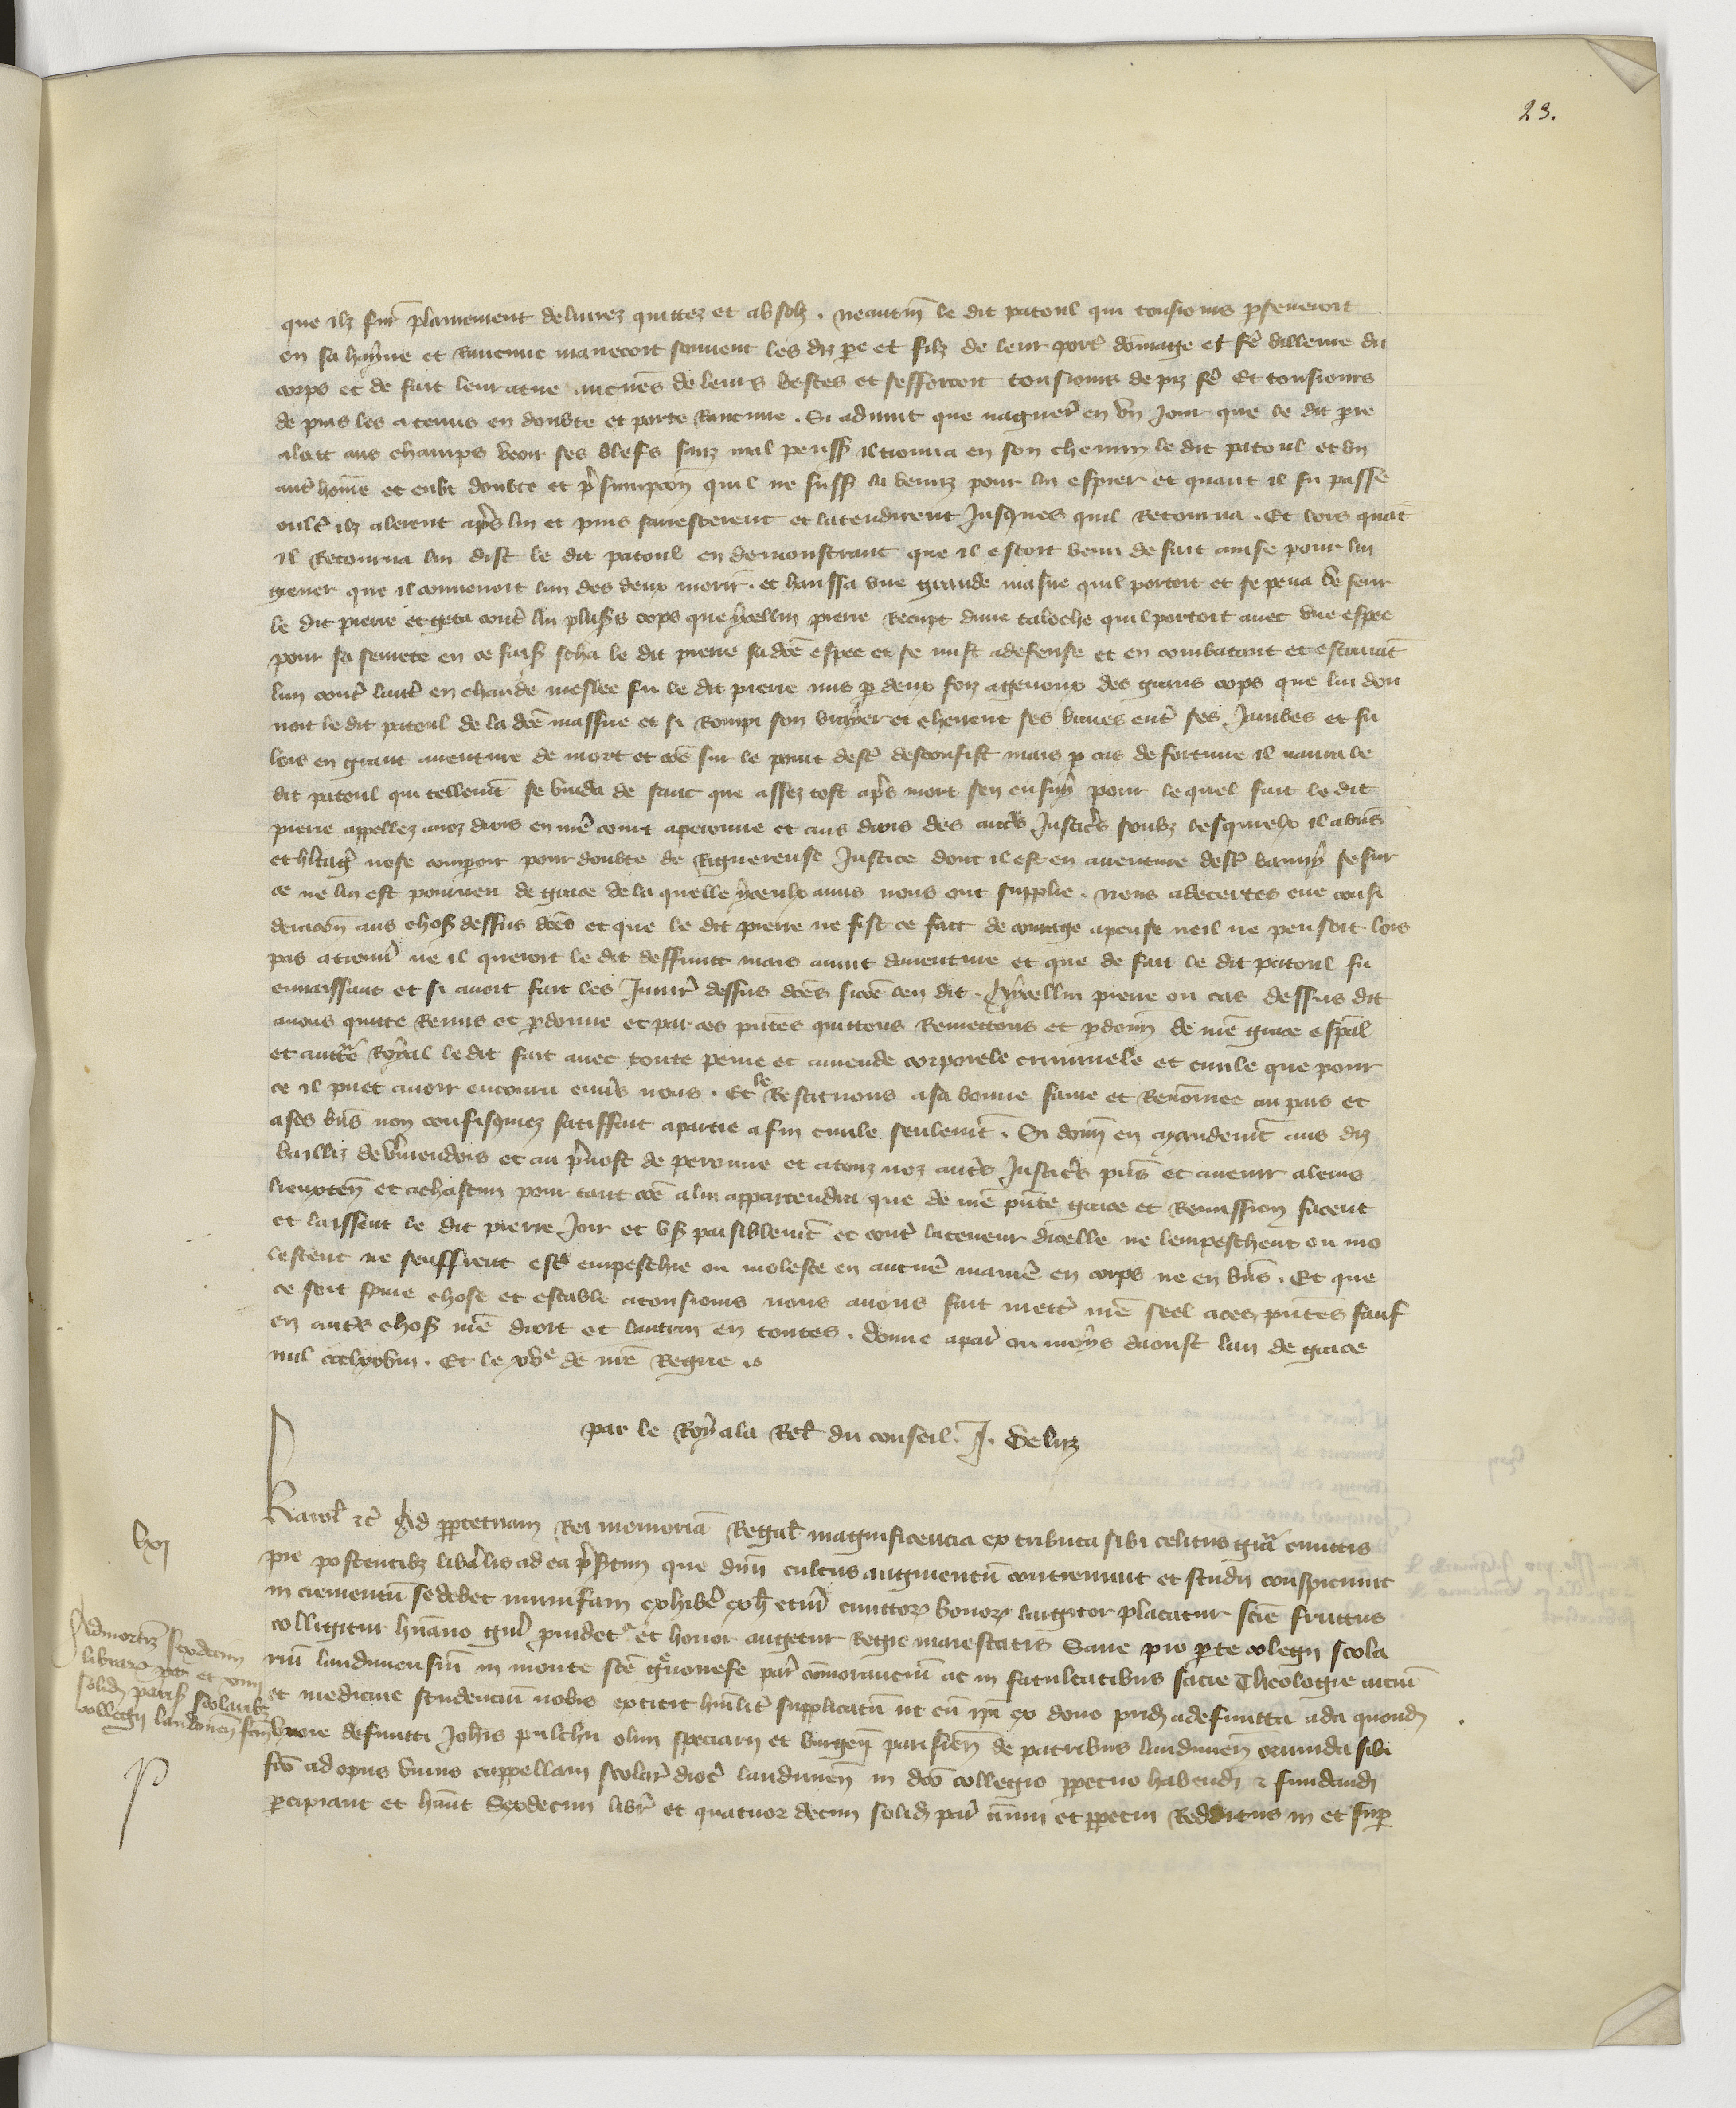 23.
que ilz furẽt plainement delivrez quittez et absolz . neantmͫ le dit patoul qui tousiours ꝑseveroit
en sa hayne et rancune manecoit souvent les diz pere et filz de leur porter dõmage et fẽ villenie du
corps et de fait leur a tue aucunes de leurs bestes et sefforcoit tousiours de piz fẽ Et tousiours
de puis les a tenus en doubte et porte rancune . Si advint que naguerẽ en un Jour que le dit pierre
aloit aus champs veoir ses blefs sanz mal penser il trouva en son chemin le dit patoul et un
autr̃ home et eubt doubte et p̃sumpcion quil ne fuss la venuz pour lui espier et quant il fu passe
oultr̃ ilz alerent aprs lui et puis saresterent et latendirent Jusques quil Retourna . Et lors quãt
il Retourna lui dist le dit patoul en demonstrant que il estoit venu de fait avise pour lui
grever que il convenoit lun des deux morir . et haussa une grande masue quil portoit et se pena de ferir
le dit pierre et geta contr̃ lui plus̃s cops que ycellui pierre Recupt dune taloche quil portoit avec une espee
pour sa seurete en ce fais̃ sacha le dit pierre sa dc̃e espee et se mist a defense et en combatant et
lun contr̃ lautr̃ en chaude meslee fu le dit pierre mis ꝑ deux foiz a genoux des grans cops que lui don
noit le dit patoul de la dc̃e massue et si Rompi son brayer et cheirent ses braies entr̃ ses Jambes et fu
lors en grant aventure de mort et cõe sur le point destr̃ desconfist mais ꝑ cas de fortune il navra le
dit patoul qui tellemt̃ se vuida de sanc que assez tost aprs mort sen ensuy pour le quel fait le dit
pierre appellez a noz drois en nr̃e court a peronne et aus drois des autrs Justicrs soubz lesquielx il a biẽs
et hr̃itages nose comparoir pour doubte de Rigueureuse Justice dont il est en aventure destr̃ banny se sur
ce ne lui est pourveu de grace de la quelle yceulx amis nous ont supplie . Nous adecertes eue consi
deracion aus choss dessus dc̃es et que le dit pierre ne fist ce fait de courage apense ne il ne pensoit lors
pas a trouvr̃ ne il queroit le dit deffunct mais avint daventure et que de fait le dit patoul fu
envaissant et si avoit fait les Iniurs dessus dc̃es sicõe len dit . A ycellui pierre ou cas dessus dit
avons quitte Remis et ꝑdonne et par ces pñtes quittons Remettons et ꝑdonͫ de nr̃e grace esp̃al
et auctẽ Royal le dit fait avec toute peine et amende corporele criminele et civile que pour
ce il puet avoir encouru envrs nous . Et le Restituons a sa bonne fame et Renõmee au pais et
a ses biẽs non confisquiez satisffait a partie a fin civile seulemt̃ . Si donͫ en mandemt̃ aus diz
bailliz de vermendois et au prevost de peronne et a touz noz autrs Justicrs pñs et avenir a leurs
lieuxteñ et a chascun pour tant cõe a lui appartendra que de nr̃e pñte grace et Remission facent
et laissent le dit pierre Joir et us̃ paisiblemt̃ et contr̃ la teneur dicelle ne lempeschent ou mo
lestent ne seuffrent estr̃ empeschie ou moleste en aucunẽ manierẽ en corps ne en biẽs . Et que
ce soit ferme chose et estable a tousiours nous avons fait mettr̃ nr̃e seel a ces pñtes sauf
en autrs choss nr̃e droit et lautrui en toutes . Donne a par̃ ou moys daoust lan de grace
mil ccclxxviii . Et le xve de nr̃e Regne .
par le Roy a la Rel̃ du conseil . J . de luz
lxi
Karol̃ ⁊c̃ Ad ꝑpetuam Rei memoriã Regal̃ magnificencia ex tributa sibi celitus gr̃a cunctis
pie postentibz liberalis ad ea p̃sertim que divini cultus augmentũ continuant et studii conspiciunt
in crementũ se debet munificam exhibẽ exh̃ etenim cunctoꝝ bonoꝝ largitor placatur scie fructus
colligitur humano generi providet᷒ et honor augetur Regie maiestatis Sane pro parte colegii scola
riũ laudunensiũ in monte scẽ genovefe par̃ cõmoranciũ ac in facultatibus sacre Theologie arciũ
et medicine studenciũ nobis extitit humilitr̃ supplicatũ ut cũ ipi ex dono pridẽ a defuncta ada quondã
uxore defuncti Johis pulchri olim speciarii et burgen̄ parisien̄ de patribus laudunen̄ oriunda sibi
fc̃o ad opus unius cappellani scolar̃ dioc̃ laudunen̄ in dc̃o collegio ꝑpetuo habend̃ ⁊ fundand̃
ꝑcipiant et hãnt Sexdecim libr̃ et quatuor decim solid̃ par̃ ãnui et ꝑpetui Redditus in et suꝑ
Admortiz̃ sexdecim
libraꝝ par̃ et xiiii
solid̃ paris̃ scolaribz
collegii laudunen̄ fcm̃